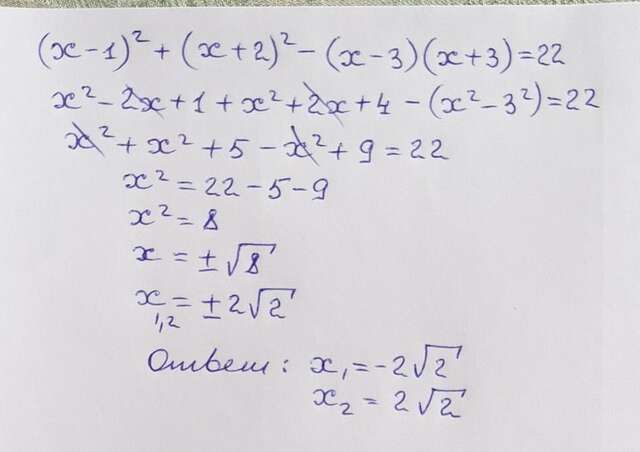 (x-1)² + (x+2)² - (x-3)(x+3)=22
x² - 2x + 1 + x² + 2x + 4 - (x² - 3²)=22
x² + x² + 5 - x² + 9 = 22
x² = 22 - 5 - 9
x² = 8
x = ±√8
x₁,₂ = ±2√2
Ответ: x₁ = -2√2
x₂ = 2√2